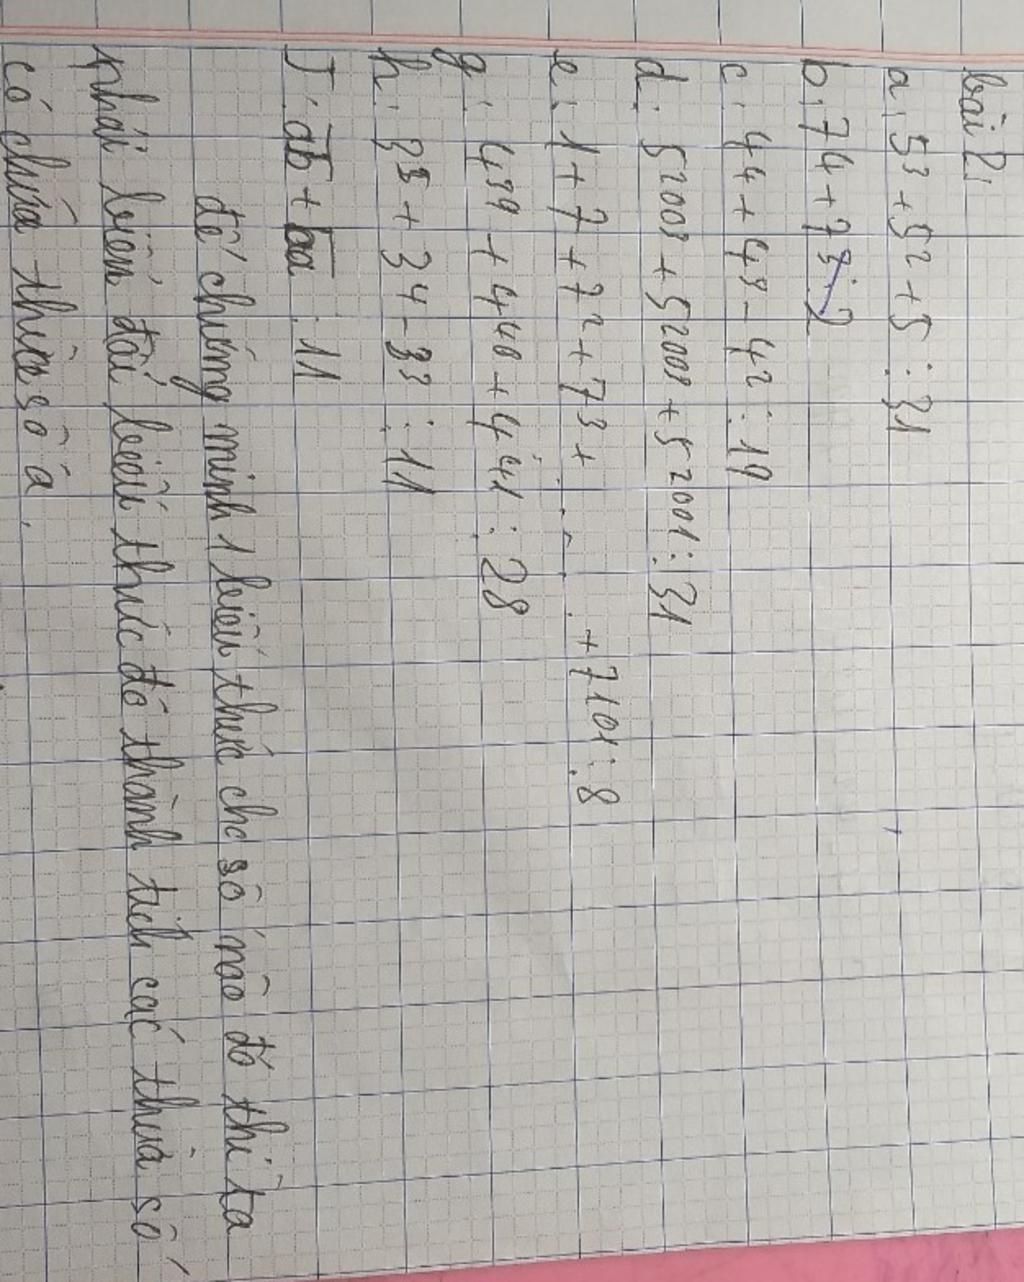 bài 2:
a, 53 + 52 + 5 : 31
b, 74 + 73 : 2
c. 44 + 43 - 42 : 19
d. 52003 + 52002 + 52001 : 31
e. 1 + 7 + 72 + 73 + ..... + 7101 : 8
g. 439 + 440 + 441 : 28
h. 35 + 34 - 33 : 11
J. ab + ba : 11
để chứng minh 1 biểu thức cho số nào đó thì ta
phải biến đổi biểu thức đó thành tích các thừa số
có chứa thừa số a.